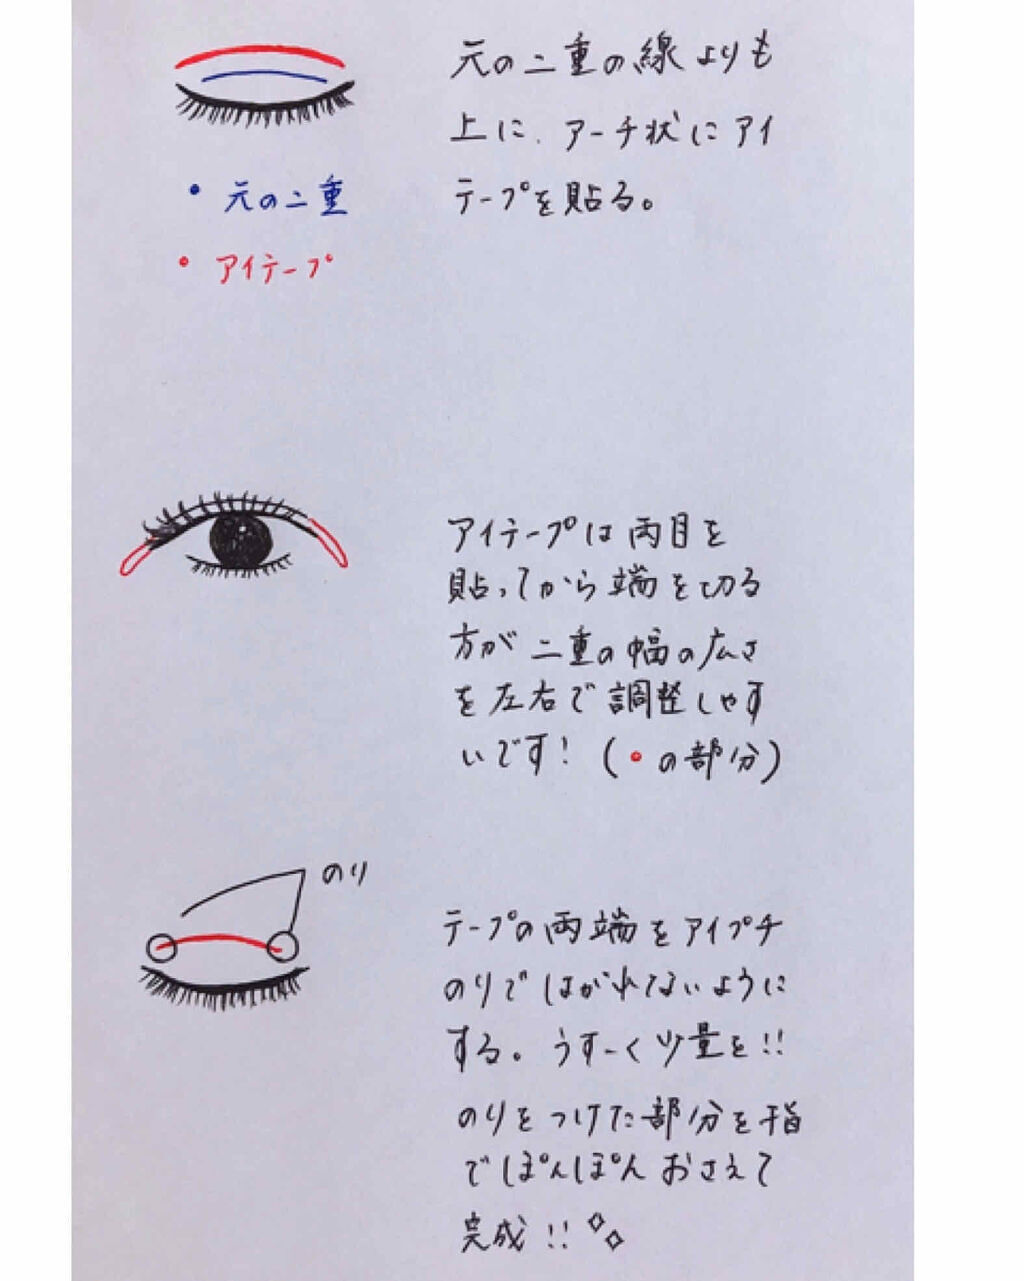 元の二重の線よりも
上に、アーチ状にアイ
テープを貼る。
・元の二重
・アイテープ
アイテープは両目を
貼ってから端を切る
方が二重の幅の広さ
を左右で調整しやす
いです!(・の部分)
のり
テープの両端をアイプチ
のりではがれてないように
する。うすーく少量を!!
のりをつけた部分を指
でぽんぽんおさえて
完成!!